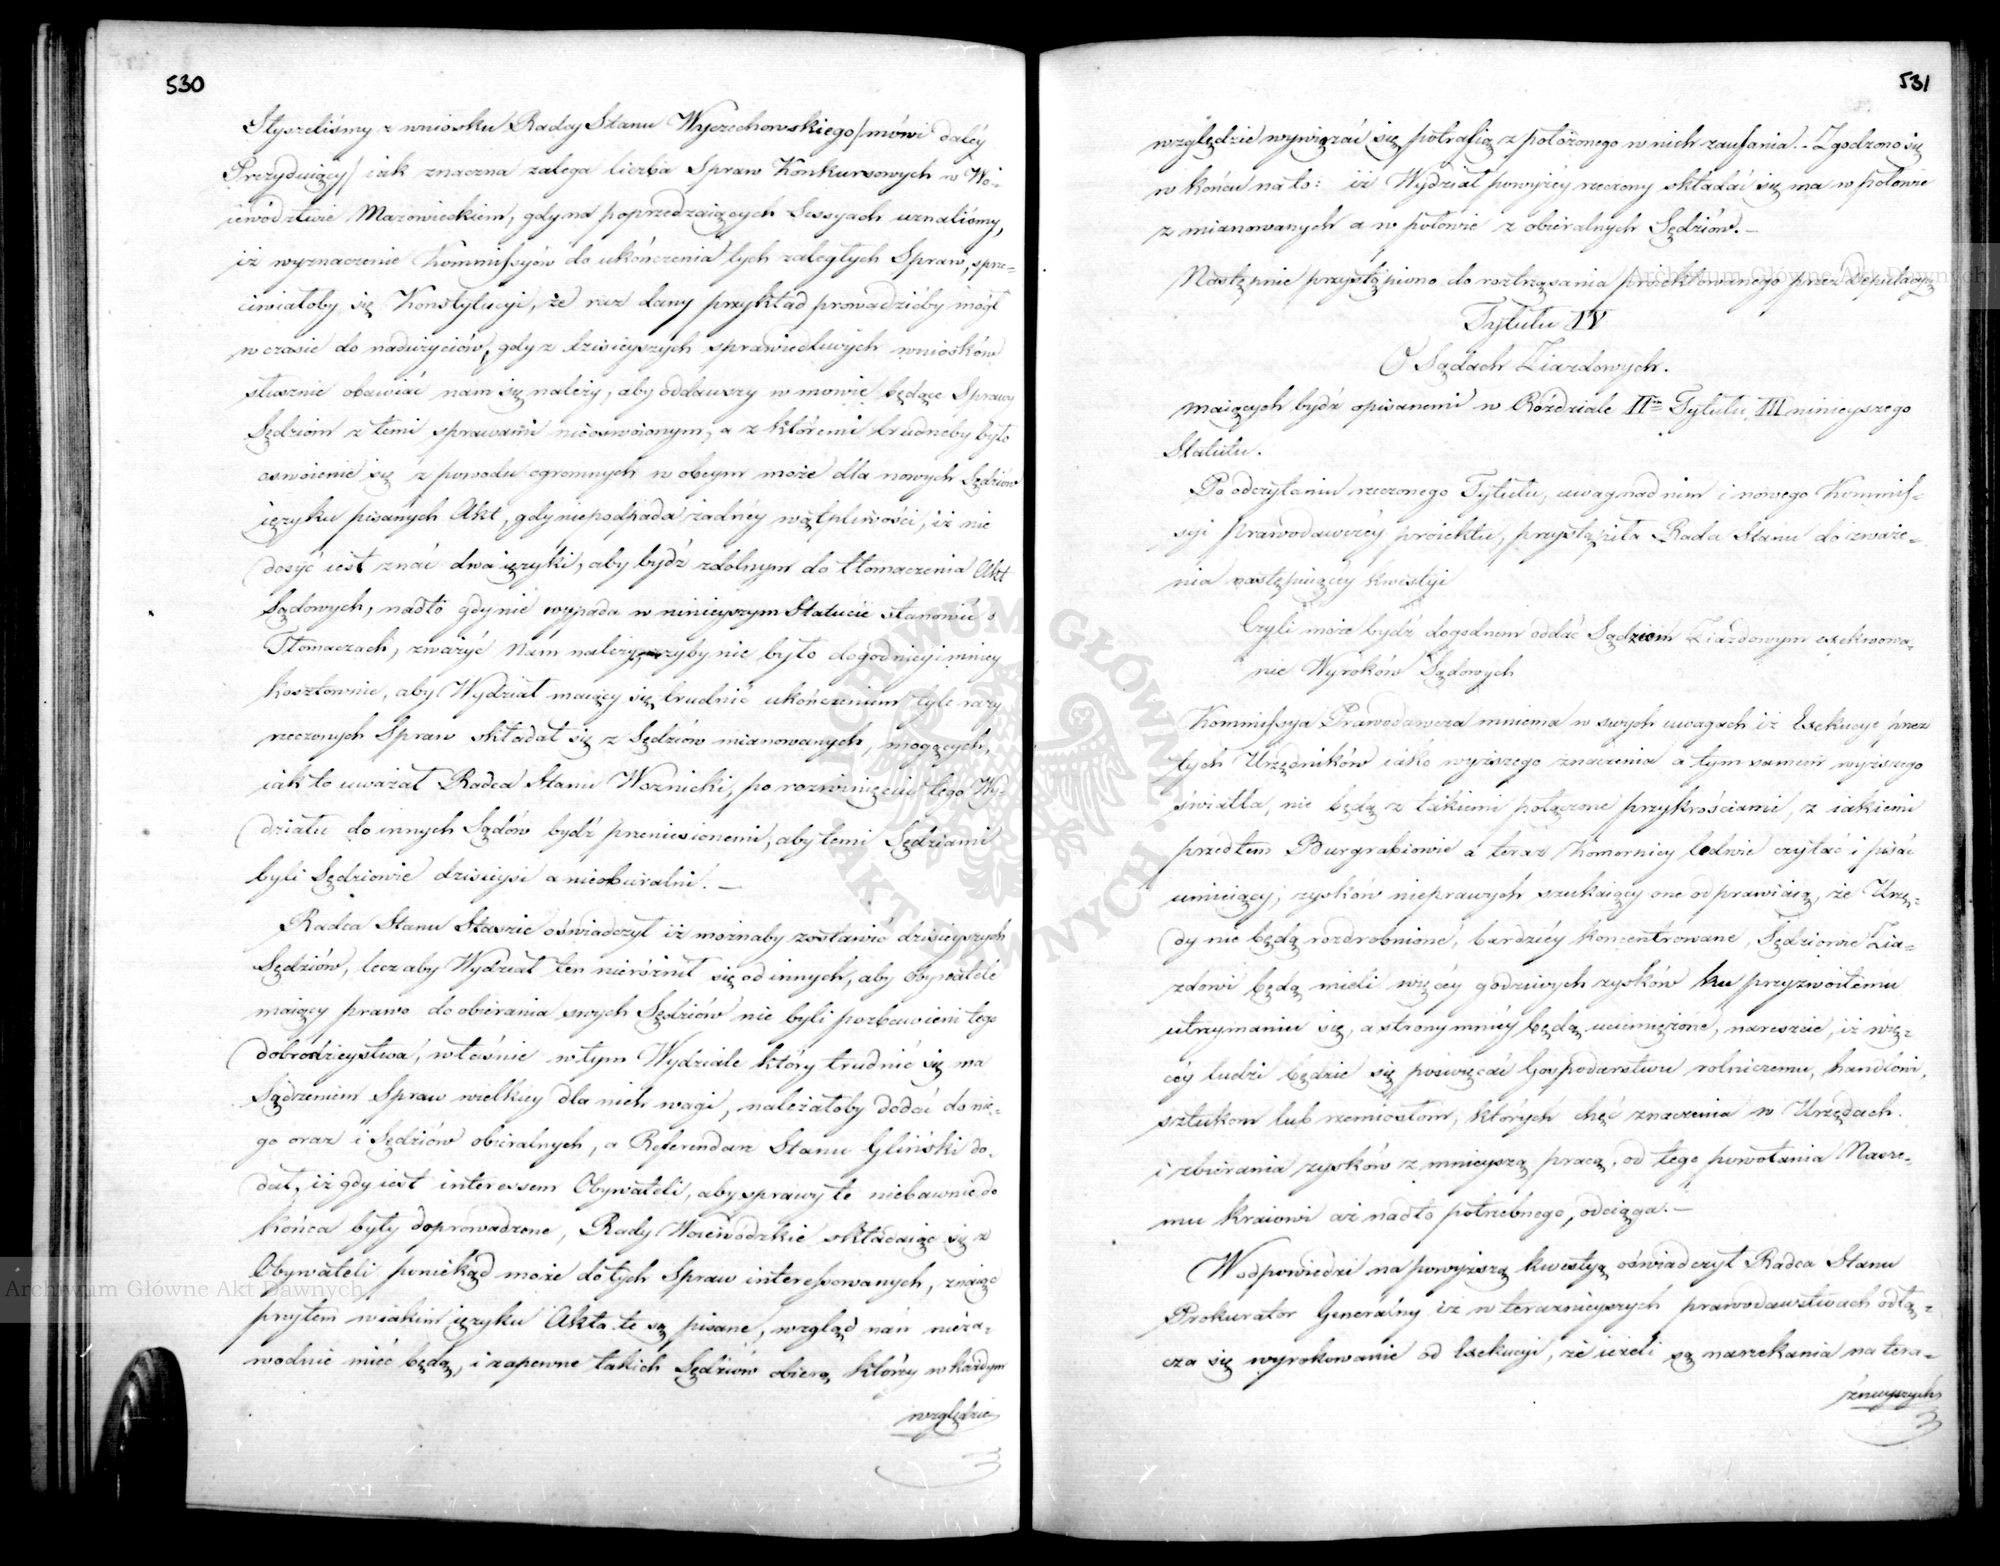 530
Słyszeliśmy z wniosku Radcy Stanu Wyczechowskiego /mówi daléy
Prezyduiący/ iak znaczna zalega liczba Spraw Konkursowych w Wo-
iewództwie Mazowieckiem, gdy na poprzedzaiących Sessyach uznaliśmy,
iż wyznaczenie Kommissyów do ukończenia tych zaległych Spraw, sprze-
ciwiałoby się Konstytucyi, że raz dany przykład prowadzićby mógł
w czasie do nadużyciów, gdy z dzisieyszych sprawiedliwych wniosków
słusznie obawiać nam się należy, aby oddawszy w mowie będące Sprawy
Sędziom z temi sprawami nieoswoionym, a z któremi trudneby było
oswoienie się z powodu ogromnych w obcym może dla nowych Sędziów
ięzyku pisanych Akt, gdy niepodpada żadnéy wątpliwości, iż nie
dosyć iest znać dwa ięzyki, aby bydź zdolnym do tłomaczenia Akt
Sądowych, nadto gdy nie wypada w ninieyszym Statucie stanowić o
Tłomaczach, zważyć Nam należy, czyby nie było dogodniey i mniey
kosztownie, aby Wydział maiący się trudnić ukończeniem tyle razy
rzeczonych Spraw składał się z Sędziów mianowanych, mogących,
iak to uważał Radca Stanu Woznicki, po rozwinięciu tego Wy-
działu do innych Sądów bydź przeniesionemi, aby temi Sędziami
byli Sędziowie dzisieysi a nieobieralni. —
Radca Stanu Staszic oświadczył iż możnaby zostawić dzisieyszych
Sędziów, lecz aby Wydział ten nieróżnił się od innych, aby obywatele
maiący prawo do obierania swych Sędziów nie byli pozbawieni tego
dobrodzieystwa, właśnie w tym Wydziale który trudnić się ma
Sądzeniem Spraw wielkiey dla nich wagi, należałoby dodać do nie-
go oraz i Sędziów obieralnych, a Referendarz Stanu Gliński do-
dał, iż gdy iest interessem Obywateli, aby sprawy te niebawnie do
końca były doprowadzone, Rady Woiewódzkie składaiąc się z
Obywateli poniekąd może do tych Spraw interessowanych, znaiąc
przytem w iakim ięzyku Akta te są pisane, wzgląd nań nieza-
wodnie mieć będą, i zapewne takich Sędziów obiorą którzy w każdym
względzie
531
względzie wywiązać się potrafią z położonego w nich zaufania. - Zgodzono się
w końcu na to: iż Wydział powyżéy rzeczony składać się ma w połowie
z mianowanych a w połowie z obieralnych Sędziów. —
Następnie przystąpiono do roztrząsania proiektowanego przez Deputacyą
Tytułu IV
O Sądach Ziazdowych.
maiących bydź opisanemi w Rózdziale IIm Tytułu III ninieyszego
Statutu.
Po odczytaniu rzeczonego Tytułu, uwag nad nim i nowego Kommis-
syi Prawodawczéy proiektu, przystąpiła Rada Stanu do zważe-
nia następuiącey kwestyi
Czyli może bydź dogodnem oddać Sędziom Ziazdowym exekwowa-
nie Wyroków Sądowych
Kommissya Prawodawcza mniema w swych uwagach iż Exekucye przez
tych Urzędników iako wyższego znaczenia a tym samem wyższego
światła, nie będą z takiemi połączone przykrościami, z iakiemi
przedtem Burgrabiowie a teraz Komornicy ledwie czytać i pisać
umieiący, zysków nieprawych szukaiący one odprawiaią, że Urzę-
dy nie będą rozdrobnione, bardziéy koncentrowane, Sędziowie Zia-
zdowi będą mieli więcéy godziwych zysków ku przyzwoitemu
utrzymaniu się, a strony mniéy będą uciemiężone, nareszcie, iż wię-
céy ludzi będzie się poświęcać Gospodarstwu rolniczemu, handlowi,
sztukom lub rzemiosłom, których chęć znaczenia w Urzędach
i zbierania zysków z mnieyszą pracą, od tego powołania Nasze-
mu kraiowi aż nadto potrzebnego, odciąga. —
W odpowiedzi na powyższą kwestyą oświadczył Radca Stanu
Prokurator Generalny iż w teraznieyszych prawodawstwach odłą-
cza się wyrokowanie od Exekucyi, że ieżeli są narzekania na tera-
źnieyszych
Archiwum Główne Akt Dawnych
Archiwum Główne Akt Dawnych
ARCHIWUM GŁÓWNE AKT DAWNYCH